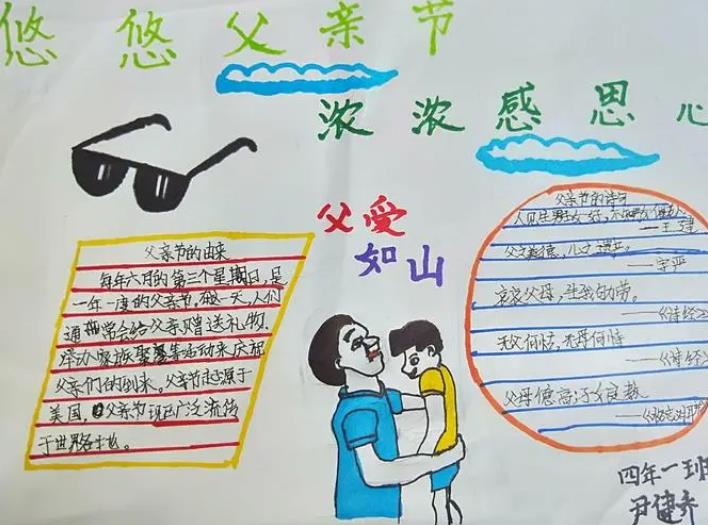 悠悠父亲节
浓浓感恩心
父爱
如山
父亲节的由来
每年六月的第三个星期日,是
一年一度的父亲节,这一天,人们
通常会给父亲赠送礼物,
举办家族聚餐等活动来庆祝
父亲们的到来。父亲节起源于
美国,父亲节现已广泛流传
于世界各地。
父亲节的诗句
人见生男生女好,不知男女催人老。
——王建
哀哀父母,生我劬劳。
——《诗经》
无父何怙,无母何恃
——《诗经》
父母
四年一班